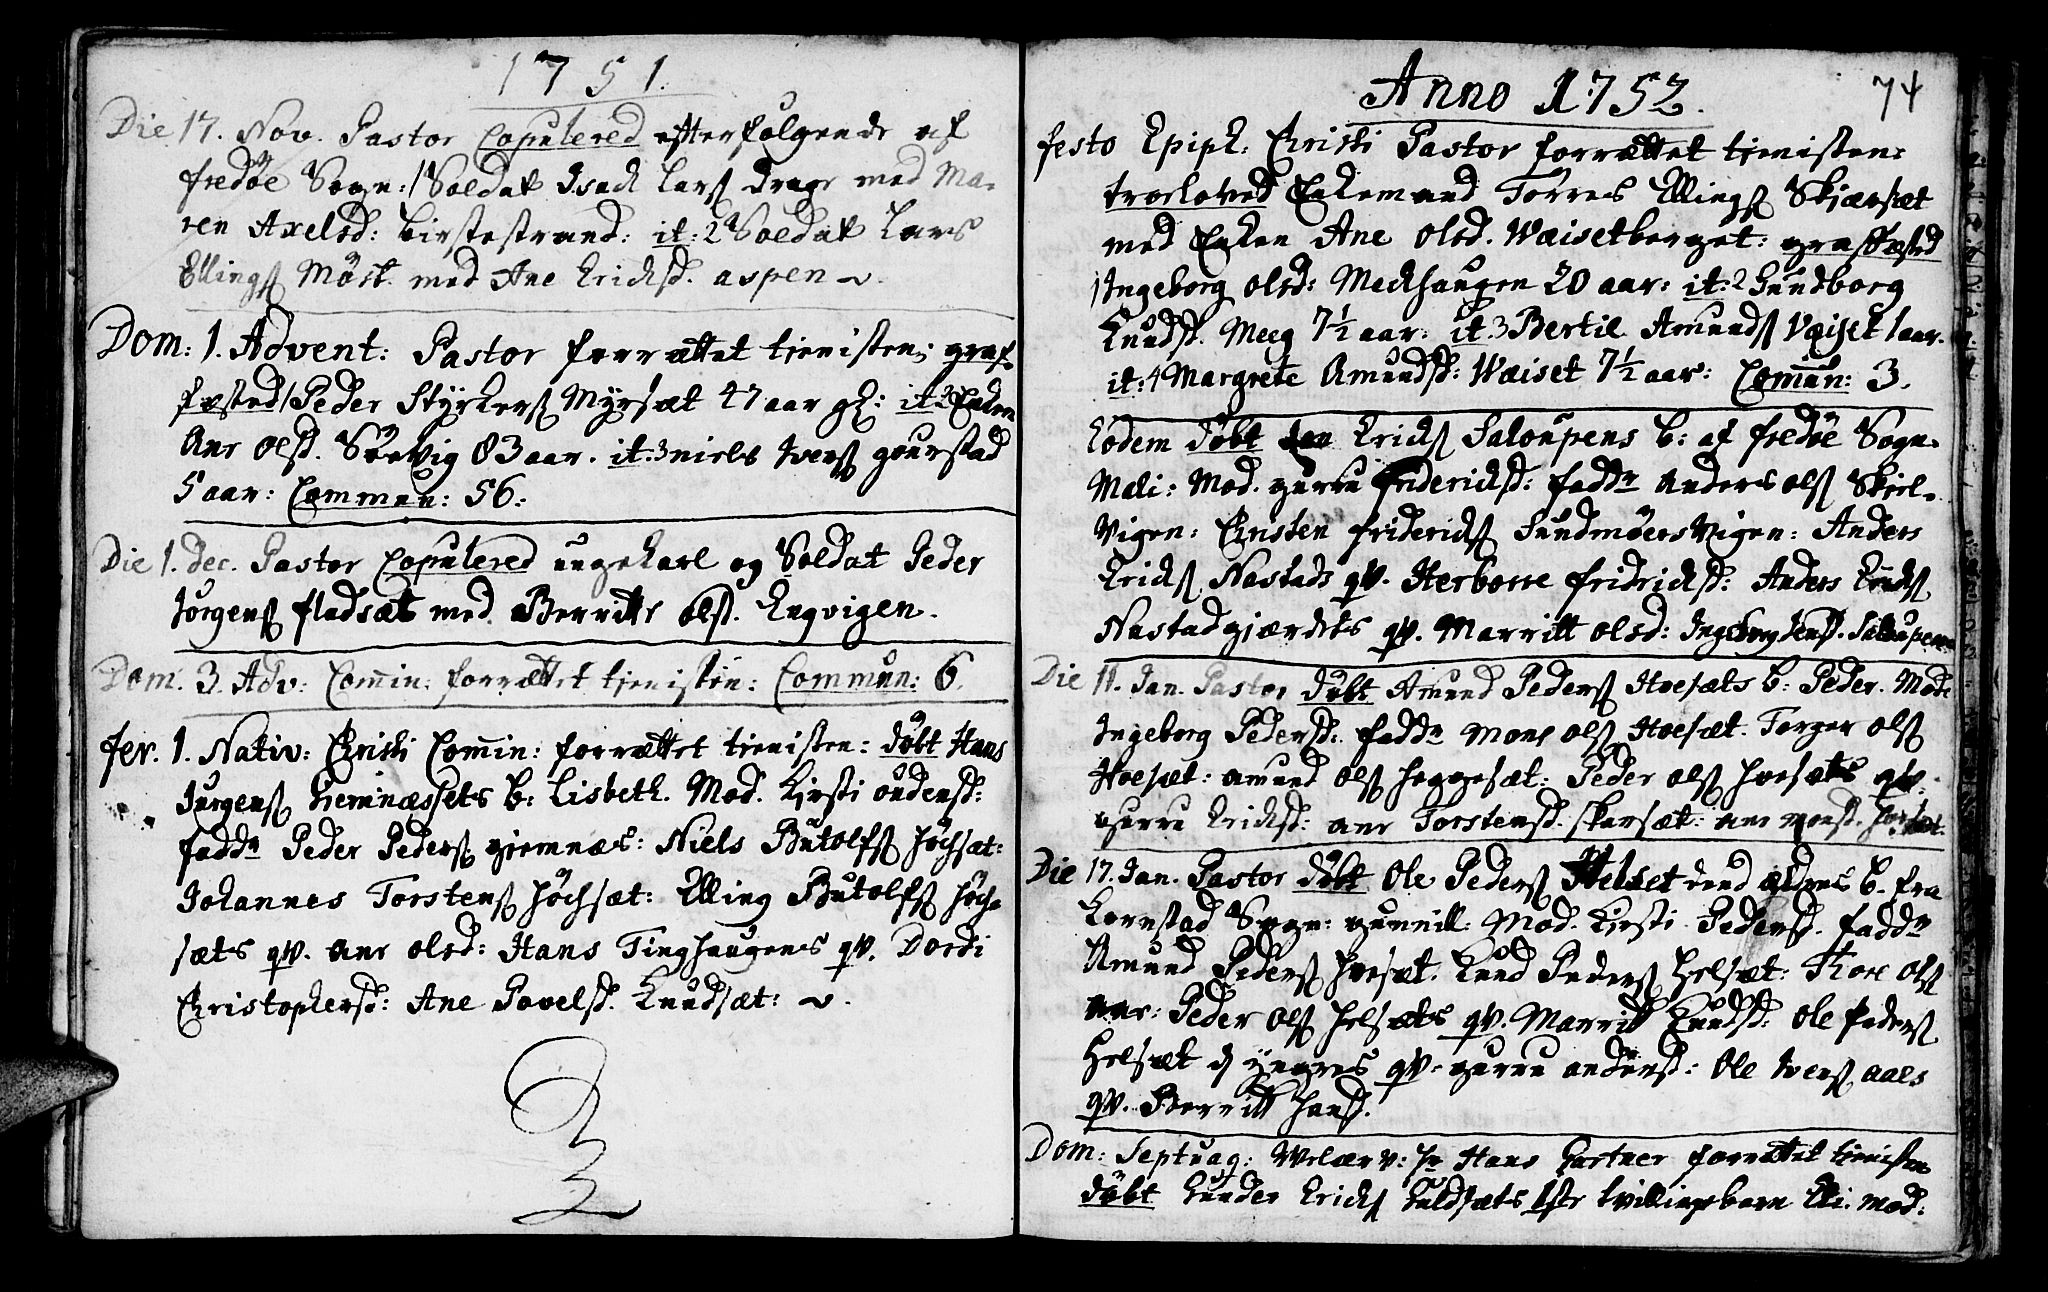 1751.
Die 17. Nov. Pastor Copulered efterfølgende af
fredøe Sogn: 1 Soldat Isach Larss Drage med Ma-
ren Axelsd: Birstestrand: it: 2 Soldat Lars
Ellingss Møst. med Ane Erichsd. aspen
Dom: 1. Advent: Pastor forrættet tienisten: graf-
fæsted 1 Peder Styrkerss Myrsæt 47 aar gl: it: 2 Enken
Ane Olsd. Sørvig 83 aar. it: 3 niels Iverss gourstad
5 aar: Commun: 56:
Die 1. dec. Pastor Copulered ungekarl og Soldat Peder
Jørgenss fladsæt med Berritte olsd. Engvigen.
Dom. 3. Adv: Comin: forrættet tienisten: Commun: 6.
fer. 1. Nativ: Christi Comin: forrættet tienisten: døbt Hans
Jurgenss Giemnæssets b: Lisbeth. Mod. Kirsti oudensd:
fadd Peder Pederss giemnæs: Niels Butolfss Høchsæt:
Johannes Torstenss høchsæt: Elling Butolfss høch-
sæts qv. ane olsd: Hans Tinghaugens qv. Dordi
Christophersd: Ane Povelsd. Knudsæt:
Anno 1752.
74
festo Epiph: Christi Pastor forrættet tienisten:
troeloved Enkemand Torres Ellingss Skjærsæt
med Enken Ane Olsd. Wæisetberget: graffæsted
1 Ingeborg olsd: Mechhaugen 20 aar: it: 2 Gundborg
Knudsd. Meeg 7 1/2 aar: it 3 Bertil Amundss Væiset 1 aar.
it: 4 Margrete Amundsd: Wæiset 7 1/2 aar: Comun: 3.
Eodem døbt Erichss Saloupens b: af fredøe Sogn.
Mali: Mod. gurru friderichsd: fadd Anders olss Skiel-
vigen: Christen friderichss Sundmøersvigen: Anders
Erichss Nastads qv. Herborre fridrichsd: Anders Knudss
Nastadgjærdets qv. Marritt olsd: Ingeborg Jensd. Saloupen
Die 11. Jan. Pastor døbt Amund Pederss Hoesæts b: Peder. Mod
Ingeborg Pedersd: fadd Mons olss Hoesæt. Torger olss
Hoesæt: amund olss heggesæt: Peder olss hoesæts qv.
gurru Erichsd: ane Torstensd. skarsæt: ane monsd.
Die 17. Jan. Pastor døbt Ole Pederss Helset dend ældres b. fra
Kornstad Sogn: gunnill: Mod. Kirsti Pedersd. fadd
Amund Pederss hoesæt. Knud Pederss helsæt: Tore olss
Peder olss helsæts qv. Marritt Knudsd: Ole Pederss
helsæt d yngres qv. gurru andersd: Ole Iverss aaes
qv. Berritt hansd.
Dom: Septuag: Welærv: hr Hans Gartner forrættet tienisten
døbt Gunder Erichss Guldsæts 1ste tvillingebarn Eli. mod: